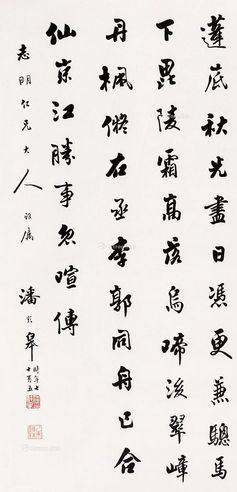 蓬底秋光盡日憑更兼驄馬
下毘陵霜高烏啼後翠嶂
丹楓右丞李郭同舟已合
仙京江勝事忽喧傳
志明仁兄大人雅屬
潘齡皋時年七十有五